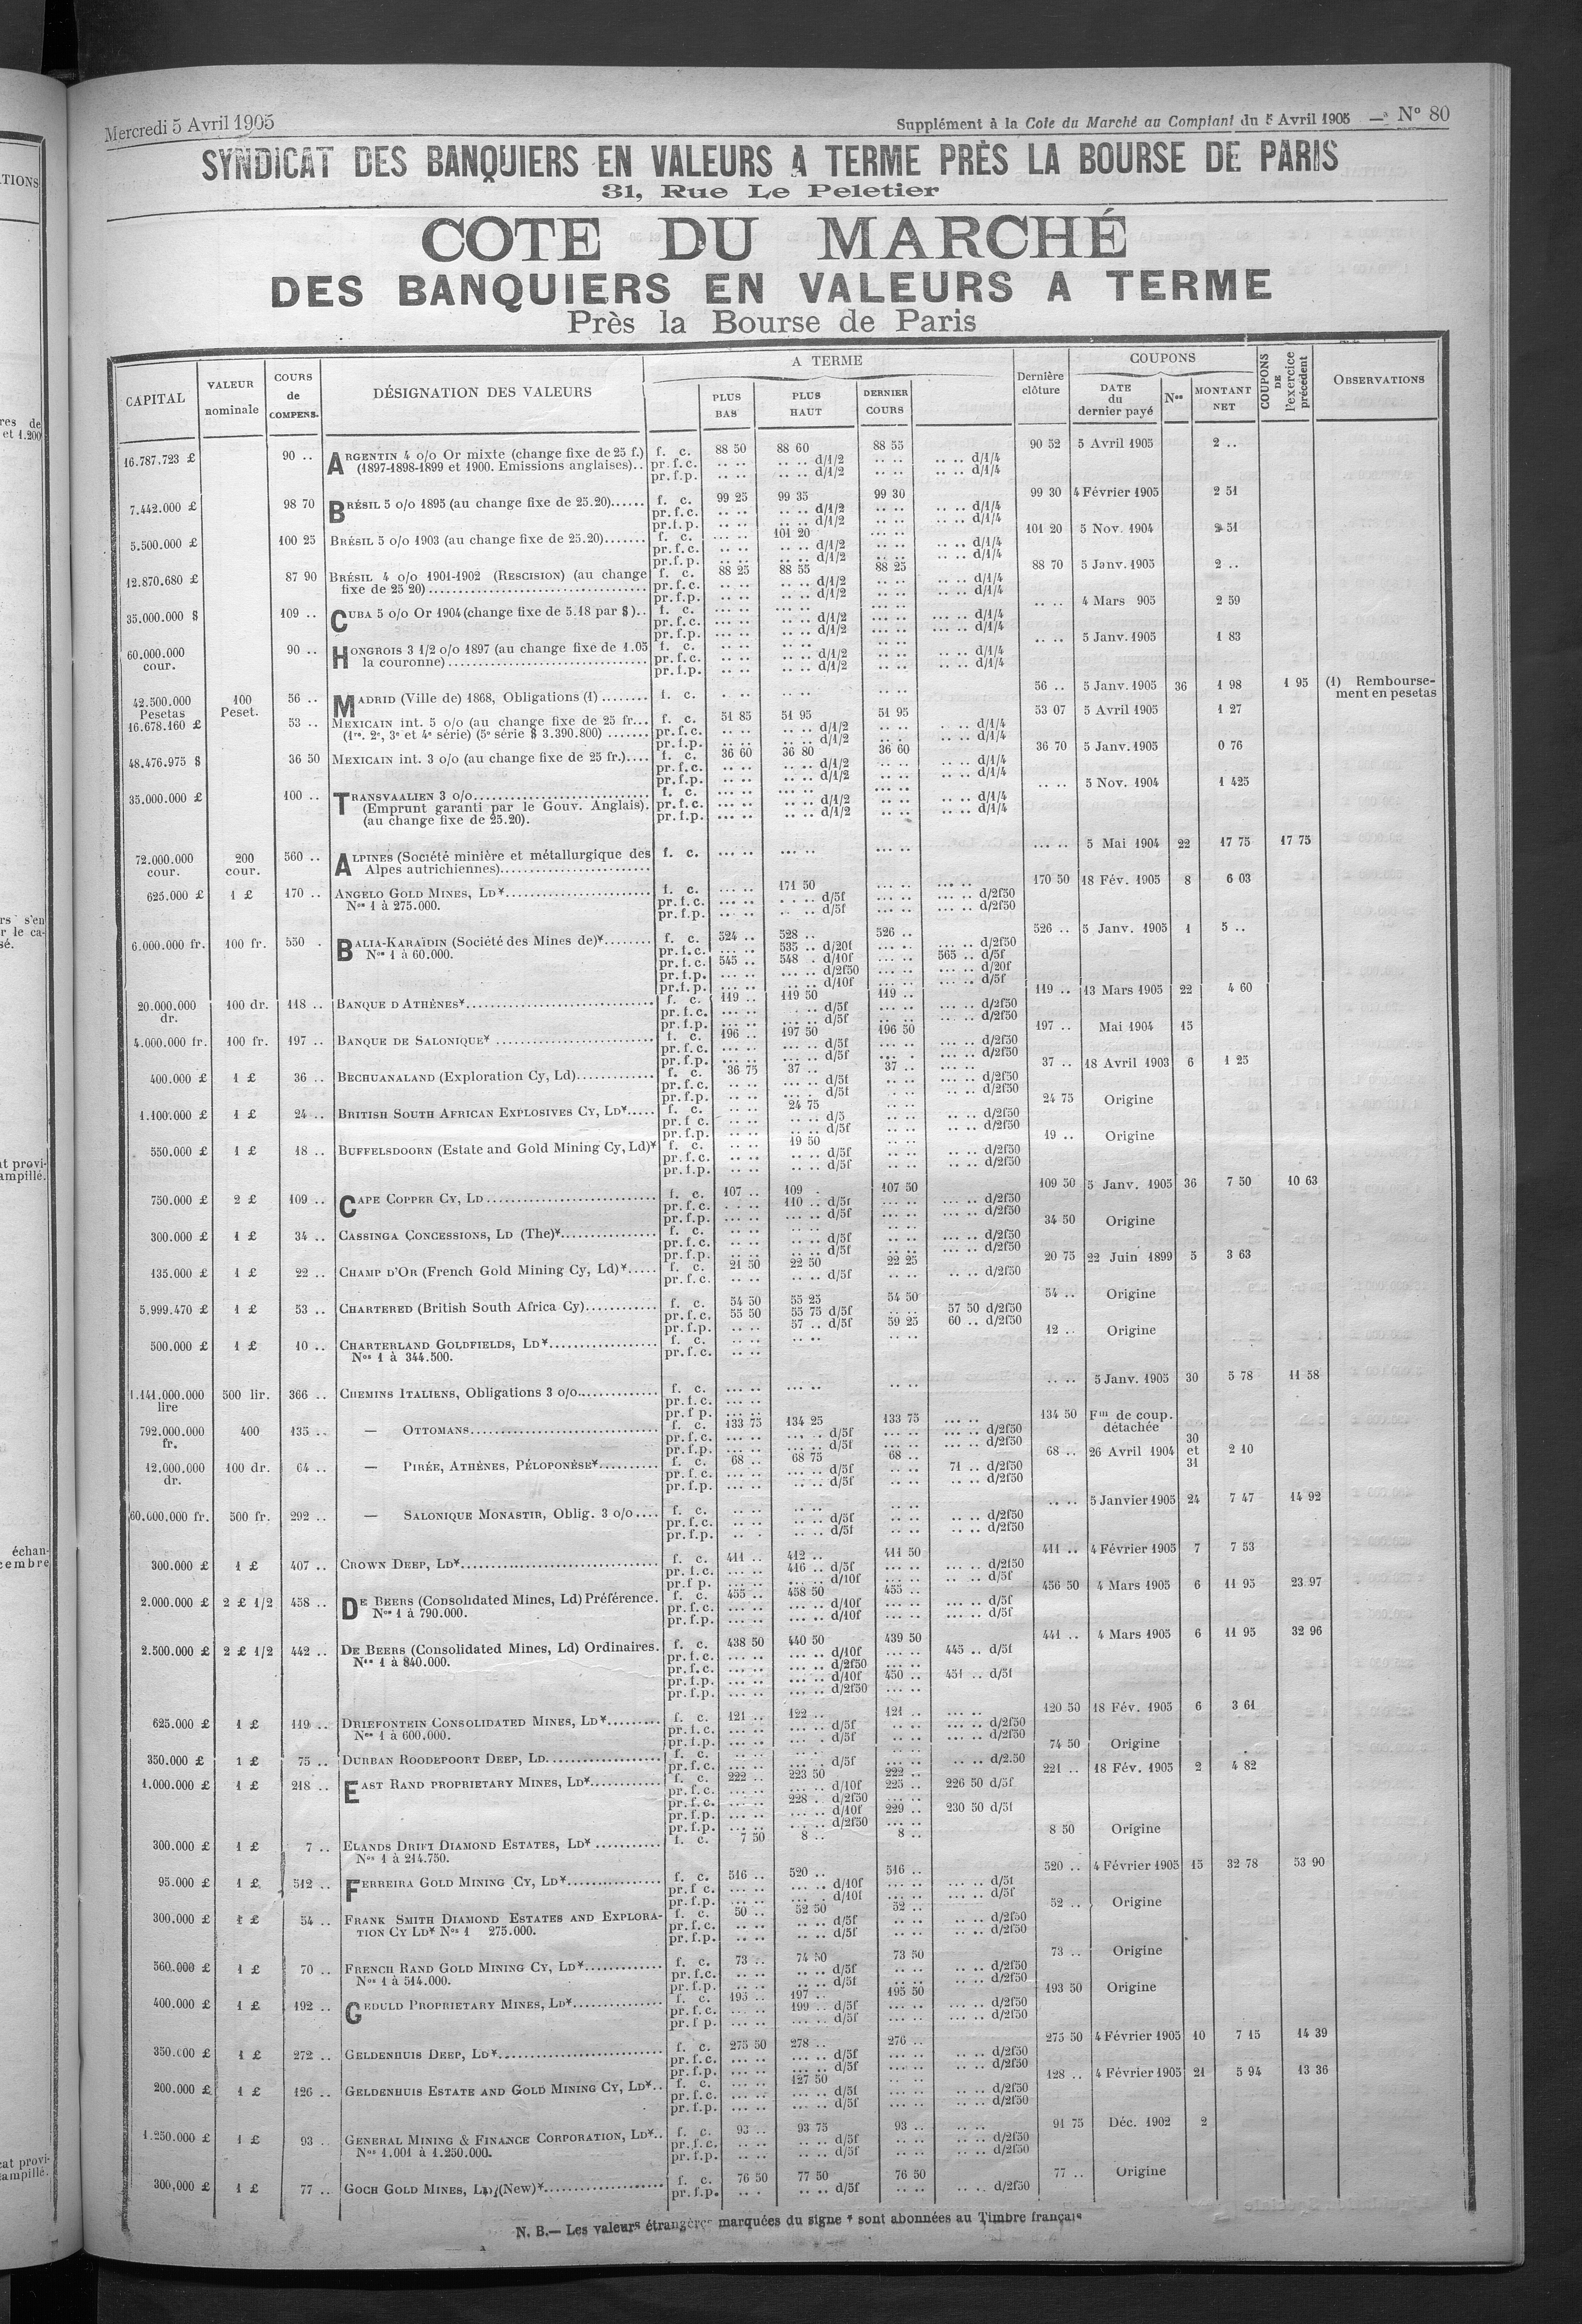 TIONS
res de
et 1.200
rs s'en
r le ca-
sé.
at provi-
ampillé.
échan-
cembre
cat provi-
ampillé.
Mercredi 5 Avril 1905
Supplément à la Cote du Marché au Comptant du 5 Avril 1905 — Nº 80
SYNDICAT DES BANQUIERS EN VALEURS A TERME PRÈS LA BOURSE DE PARIS
31, Rue Le Peletier
COTE DU MARCHÉ
DES BANQUIERS EN VALEURS A TERME
Près la Bourse de Paris
CAPITAL | VALEUR nominale | COURS de COMPENS. | DÉSIGNATION DES VALEURS | A TERME | PLUS BAS | PLUS HAUT | DERNIER COURS | Dernière clôture | COUPONS | DATE du dernier payé | Nos | MONTANT NET | COUPONS DE l'exercice précédent | OBSERVATIONS
16.787.723 £ 90 .. ARGENTIN 4 o/o Or mixte (change fixe de 25 f.) f. c. 88 50 88 60 88 55 90 52 5 Avril 1905 2 ..
(1897-1898-1899 et 1900. Emissions anglaises).. pr. f. c. .. .. .. .. d/1/2 .. .. .. .. d/1/4
pr. f. p. .. .. .. .. d/1/2 .. .. .. .. d/1/4
7.442.000 £ 98 70 BRÉSIL 5 o/o 1895 (au change fixe de 25.20)...... f. c. 99 25 99 35 99 30 99 30 4 Février 1905 2 51
pr. f. c. .. .. .. .. d/1/2 .. .. .. .. d/1/4
pr. f. p. .. .. .. .. d/1/2 .. .. .. .. d/1/4
5.500.000 £ 100 25 BRÉSIL 5 o/o 1903 (au change fixe de 25.20)....... f. c. ... .. 101 20 ... .. 101 20 5 Nov. 1904 2 51
pr. f. c. .. .. .. .. d/1/2 .. .. .. .. d/1/4
pr. f. p. .. .. .. .. d/1/2 .. .. .. .. d/1/4
12.870.680 £ 87 90 BRÉSIL 4 o/o 1901-1902 (RESCISION) (au change f. c. 88 25 88 55 88 25 88 70 5 Janv. 1905 2 ..
fixe de 25 20)................ pr. f. c. .. .. .. .. d/1/2 .. .. .. .. d/1/4
pr. f. p. .. .. .. .. d/1/2 .. .. .. .. d/1/4
35.000.000 $ 109 .. CUBA 5 o/o Or 1904 (change fixe de 5.18 par $).. f. c. ... .. ... .. ... .. .. .. 4 Mars 905 2 59
pr. f. c. ... .. .. .. d/1/2 ... .. ... .. d/1/4
pr. f. p. ... .. .. .. d/1/2 ... .. ... .. d/1/4
60.000.000 cour. 90 .. HONGROIS 3 1/2 o/o 1897 (au change fixe de 1.05 f. c. .. .. .. .. .. .. .. .. 5 Janv. 1905 1 83
la couronne)................ pr. f. c. .. .. .. .. d/1/2 .. .. .. .. d/1/4
pr. f. p. .. .. .. .. d/1/2 .. .. .. .. d/1/4
42.500.000 Pesetas 100 Peset. 56 .. MADRID (Ville de) 1868, Obligations (1) ........ f. c. . .. .. .. .. .. 56 .. 5 Janv. 1905 36 1 98 1 95 (1) Rembourse-
ment en pesetas
16.678.160 £ 53 .. MEXICAIN int. 5 o/o (au change fixe de 25 fr... f. c. 51 85 51 95 51 95 53 07 5 Avril 1905 1 27
(1re. 2e, 3e et 4e série) (5e série $ 3.390.800) ....... pr. f. c. .. .. .. .. d/1/2 .. .. .. .. d/1/4
pr. f. p. .. .. .. .. d/1/2 .. .. .. .. d/1/4
48.476.975 $ 36 50 MEXICAIN int. 3 o/o (au change fixe de 25 fr.).... f. c. 36 60 36 80 36 60 36 70 5 Janv. 1905 0 76
pr. f. c. .. .. .. .. d/1/2 .. .. .. .. d/1/4
pr. f. p. .. .. .. .. d/1/2 .. .. .. .. d/1/4
35.000.000 £ 100 .. TRANSVAALIEN 3 o/o................ f. c. ... .. ... .. ... .. .. .. 5 Nov. 1904 1 425
(Emprunt garanti par le Gouv. Anglais). pr. f. c. ... .. .. .. d/1/2 .. .. .. .. d/1/4
(au change fixe de 25.20). pr. f. p. ... .. .. .. d/1/2 .. .. .. .. d/1/4
72.000.000 cour. 200 cour. 560 .. ALPINES (Société minière et métallurgique des f. c. ... .. ... .. ... .. ... .. 5 Mai 1904 22 17 75 17 75
Alpes autrichiennes)................
625.000 £ 1 £ 170 .. ANGELO GOLD MINES, LD*................ f. c. ... .. 171 50 ... .. ... .. 170 50 18 Fév. 1905 8 6 03
Nos 1 à 275.000. pr. f. c. ... .. . .. .. d/5f ... .. ... .. d/2f50
pr. f. p. ... .. .. .. d/5f ... .. ... .. d/2f50
6.000.000 fr. 100 fr. 550 . BALIA-KARAÏDIN (Société des Mines de)*........ f. c. 524 .. 528 .. 526 .. 526 .. 5 Janv. 1905 1 5 ..
Nos 1 à 60.000. pr. f. c. ... .. 535 .. d/20f ... .. ... .. d/2f50
pr. f. c. 545 .. 548 . d/10f ... .. 565 .. d/5f
pr. f. p. ... .. ... .. d/2f50 ... .. ... .. d/20f
pr. f. p. ... .. ... .. d/10f ... .. ... .. d/5f
20.000.000 dr. 100 dr. 118 .. BANQUE D'ATHÈNES*................ f. c. 119 .. 119 50 119 .. 119 .. 13 Mars 1905 22 4 60
pr. f. c. ... .. . .. d/5f ... .. ... .. d/2f50
pr. f. p. ... .. ... .. d/5f ... .. ... .. d/2f50
4.000.000 fr. 100 fr. 197 .. BANQUE DE SALONIQUE* ................ f. c. 196 .. 197 50 196 50 197 .. Mai 1904 15
pr. f. c. ... .. ... .. d/5f ... .. ... .. d/2f50
pr. f. p. ... .. ... .. d/5f ... . ... .. d/2f50
400.000 £ 1 £ 36 .. BECHUANALAND (Exploration Cy, Ld)............ f. c. 36 75 37 .. 37 .. 37 .. 18 Avril 1903 6 1 25
pr. f. c. .. .. ... .. d/5f .. .. .. .. d/2f50
pr. f. p. .. .. ... . d/5f .. .. .. .. d/2f50
1.100.000 £ 1 £ 24 .. BRITISH SOUTH AFRICAN EXPLOSIVES CY, LD*..... f. c. .. .. 24 75 .. .. 24 75 Origine
pr. f. c. .. .. .. .. d/5 .. .. .. .. d/2f50
pr. f. p. .. .. .. .. d/5f .. .. .. .. d/2f50
550.000 £ 1 £ 18 .. BUFFELSDOORN (Estate and Gold Mining Cy, Ld)* f. c. .. .. 19 50 .. .. 19 .. Origine
pr. f. c. .. .. .. .. d/5f .. .. .. .. d/2f50
pr. f. p. .. .. .. .. d/5f .. .. .. .. d/2f50
750.000 £ 2 £ 109 .. CAPE COPPER CY, LD ................ f. c. 107 .. 109 . 107 50 109 50 5 Janv. 1905 36 7 50 10 63
pr. f. c. . .. .. 110 .. d/5f ... .. ... .. d/2f50
pr. f. p. ... .. ... .. d/5f ... .. ... .. d/2f50
300.000 £ 1 £ 34 .. CASSINGA CONCESSIONS, LD (The)*................ f. c. .. .. .. .. .. .. 34 50 Origine
pr. f. c. .. .. .. .. d/5f .. .. .. .. d/2f50
pr. f. p. .. .. .. .. d/5f .. .. .. .. d/2f50
135.000 £ 1 £ 22 .. CHAMP D'OR (French Gold Mining Cy, Ld)*..... f. c. 21 50 22 50 22 25 20 75 22 Juin 1899 5 3 63
pr. f. c. .. .. .. .. d/5f .. .. .. .. d/2f50
5.999.470 £ 1 £ 53 .. CHARTERED (British South Africa Cy)............ f. c. 54 50 55 25 54 50 54 .. Origine
pr. f. c. 55 50 55 75 d/5f .. .. 57 50 d/2f50
pr. f. p. .. .. 57 .. d/5f 59 25 60 .. d/2f50
500.000 £ 1 £ 10 .. CHARTERLAND GOLDFIELDS, LD*................ f. c. .. .. .. .. .. .. 12 .. Origine
Nos 1 à 344.500. pr. f. c. .. ..
1.141.000.000 lire 500 lir. 366 .. CHEMINS ITALIENS, Obligations 3 o/o............ f. c. ... .. ... .. .. .. .. .. 5 Janv. 1905 30 5 78 11 58
pr. f. c. ... ..
pr. f. p. ... ..
792.000.000 fr. 400 135 .. — OTTOMANS................ f. c. 133 75 134 25 133 75 ... .. 134 50 Fin de coup.
détachée
pr. f. c. ... .. ... .. d/5f ... .. ... .. d/2f50
pr. f. p. ... .. ... .. d/5f ... .. ... .. d/2f50
12.000.000 dr. 100 dr. 64 .. — PIRÉE, ATHÈNES, PÉLOPONÈSE*.......... f. c. 68 .. 68 75 68 .. 68 .. 26 Avril 1904 30 et 31 2 10
pr. f. c. ... .. ... .. d/5f .. .. 71 .. d/2f50
pr. f. p. ... .. ... .. d/5f .. .. .. .. d/2f50
60.000.000 fr. 500 fr. 292 .. — SALONIQUE MONASTIR, Oblig. 3 o/o.... f. c. .. .. .. .. .. .. .. .. 5 Janvier 1905 24 7 47 14 92
pr. f. c. .. .. .. .. d/5f .. .. .. .. d/2f50
pr. f. p. .. . .. .. d/5f .. .. .. .. d/2f50
300.000 £ 1 £ 407 .. CROWN DEEP, LD*................ f. c. 411 .. 412 .. 411 50 411 .. 4 Février 1905 7 7 53
pr. f. c. ... .. 416 .. d/5f ... .. ... .. d/2f50
pr. f. p. ... .. ... .. d/10f ... .. .. .. d/5f
2.000.000 £ 2 £ 1/2 458 .. DE BEERS (Consolidated Mines, Ld) Préférence. f. c. 455 .. 458 50 455 .. 456 50 4 Mars 1905 6 11 95 23 97
Nos 1 à 790.000. pr. f. c. ... .. ... .. d/10f ... .. ... .. d/5f
pr. f. p. ... .. ... .. d/10f ... .. ... .. d/5f
2.500.000 £ 2 £ 1/2 442 .. DE BEERS (Consolidated Mines, Ld) Ordinaires. f. c. 438 50 440 50 439 50 441 .. 4 Mars 1905 6 11 95 32 96
Nos 1 à 840.000. pr. f. c. ... .. ... .. d/10f ... .. 445 .. d/5f
pr. f. c. ... .. ... .. d/2f50 ... ..
pr. f. p. ... .. ... .. d/10f 450 .. 451 .. d/5f
pr. f. p. ... .. ... .. d/2f50 ... ..
625.000 £ 1 £ 119 .. DRIEFONTEIN CONSOLIDATED MINES, LD*......... f. c. 121 .. 122 .. 121 .. ... .. 120 50 18 Fév. 1905 6 3 61
Nos 1 à 600.000. pr. f. c. ... .. ... .. d/5f .. .. ... .. d/2f50
pr. f. p. ... .. ... . d/5f .. .. ... .. d/2f50
350.000 £ 1 £ 75 .. DURBAN ROODEPOORT DEEP, LD................ f. c. .. .. .. .. .. .. 74 50 Origine
pr. f. c. .. .. ... . d/5f ... .. .. .. d/2.50
1.000.000 £ 1 £ 218 .. EAST RAND PROPRIETARY MINES, LD*............ f. c. 222 .. 223 50 222 .. 221 .. 18 Fév. 1905 2 4 82
pr. f. c. ... .. ... .. d/10f 225 .. 226 50 d/5f
pr. f. c. ... .. 228 .. d/2f50 ... ..
pr. f. p. ... .. ... .. d/10f 229 .. 230 50 d/5f
pr. f. p. ... .. ... .. d/2f50 ... ..
300.000 £ 1 £ 7 .. ELANDS DRIFT DIAMOND ESTATES, LD* ........... f. c. 7 50 8 .. 8 .. 8 50 Origine
Nos 1 à 214.750.
95.000 £ 1 £ 512 .. FERREIRA GOLD MINING CY, LD*............... f. c. 516 .. 520 .. 516 .. 520 .. 4 Février 1905 15 32 78 53 90
pr. f. c. ... .. ... .. d/10f ... .. ... .. d/5f
pr. f. p. ... .. ... .. d/10f ... .. ... .. d/5f
300.000 £ 1 £ 54 .. FRANK SMITH DIAMOND ESTATES AND EXPLORA- f. c. 50 .. 52 50 52 .. 52 .. Origine
TION CY LD* Nos 1 275.000. pr. f. c. .. .. .. .. d/5f .. .. .. .. d/2f50
pr. f. p. .. .. .. .. d/5f .. .. .. .. d/2f50
560.000 £ 1 £ 70 .. FRENCH RAND GOLD MINING CY, LD*............ f. c. 73 .. 74 50 73 50 73 .. Origine
Nos 1 à 514.000. pr. f. c. .. .. .. .. d/5f .. .. .. .. d/2f50
pr. f. p. .. .. .. .. d/5f .. .. .. .. d/2f50
400.000 £ 1 £ 192 .. GEDULD PROPRIETARY MINES, LD*............... f. c. 195 .. 197 .. 195 50 193 50 Origine
pr. f. c. ... .. 199 .. d/5f ... .. ... .. d/2f50
pr. f. p. ... .. ... .. d/5f ... .. ... .. d/2f50
350.000 £ 1 £ 272 .. GELDENHUIS DEEP, LD*................ f. c. 275 50 278 .. 276 .. 275 50 4 Février 1905 10 7 15 14 39
pr. f. c. ... .. ... .. d/5f ... .. .. .. d/2f50
pr. f. p. ... .. ... .. d/5f ... .. .. .. d/2f50
200.000 £ 1 £ 126 .. GELDENHUIS ESTATE AND GOLD MINING CY, LD*.. f. c. ... .. 127 50 .. .. 128 .. 4 Février 1905 21 5 94 13 36
pr. f. c. ... .. ... .. d/5f ... .. .. .. d/2f50
pr. f. p. ... .. ... .. d/5f ... .. .. .. d/2f50
1.250.000 £ 1 £ 93 .. GENERAL MINING & FINANCE CORPORATION, LD*.. f. c. 93 .. 93 75 93 .. .. .. 91 75 Déc. 1902 2
Nos 1.001 à 1.250.000. pr. f. c. .. .. .. .. d/5f .. .. .. .. d/2f50
pr. f. p. .. .. .. .. d/5f .. .. .. .. d/2f50
300,000 £ 1 £ 77 .. GOCH GOLD MINES, LD, (New)*................ f. c. 76 50 77 50 76 50 77 .. Origine
pr. f. p. .. . .. .. d/5f .. .. .. .. d/2f50
N. B.— Les valeurs étrangères marquées du signe * sont abonnées au Timbre français